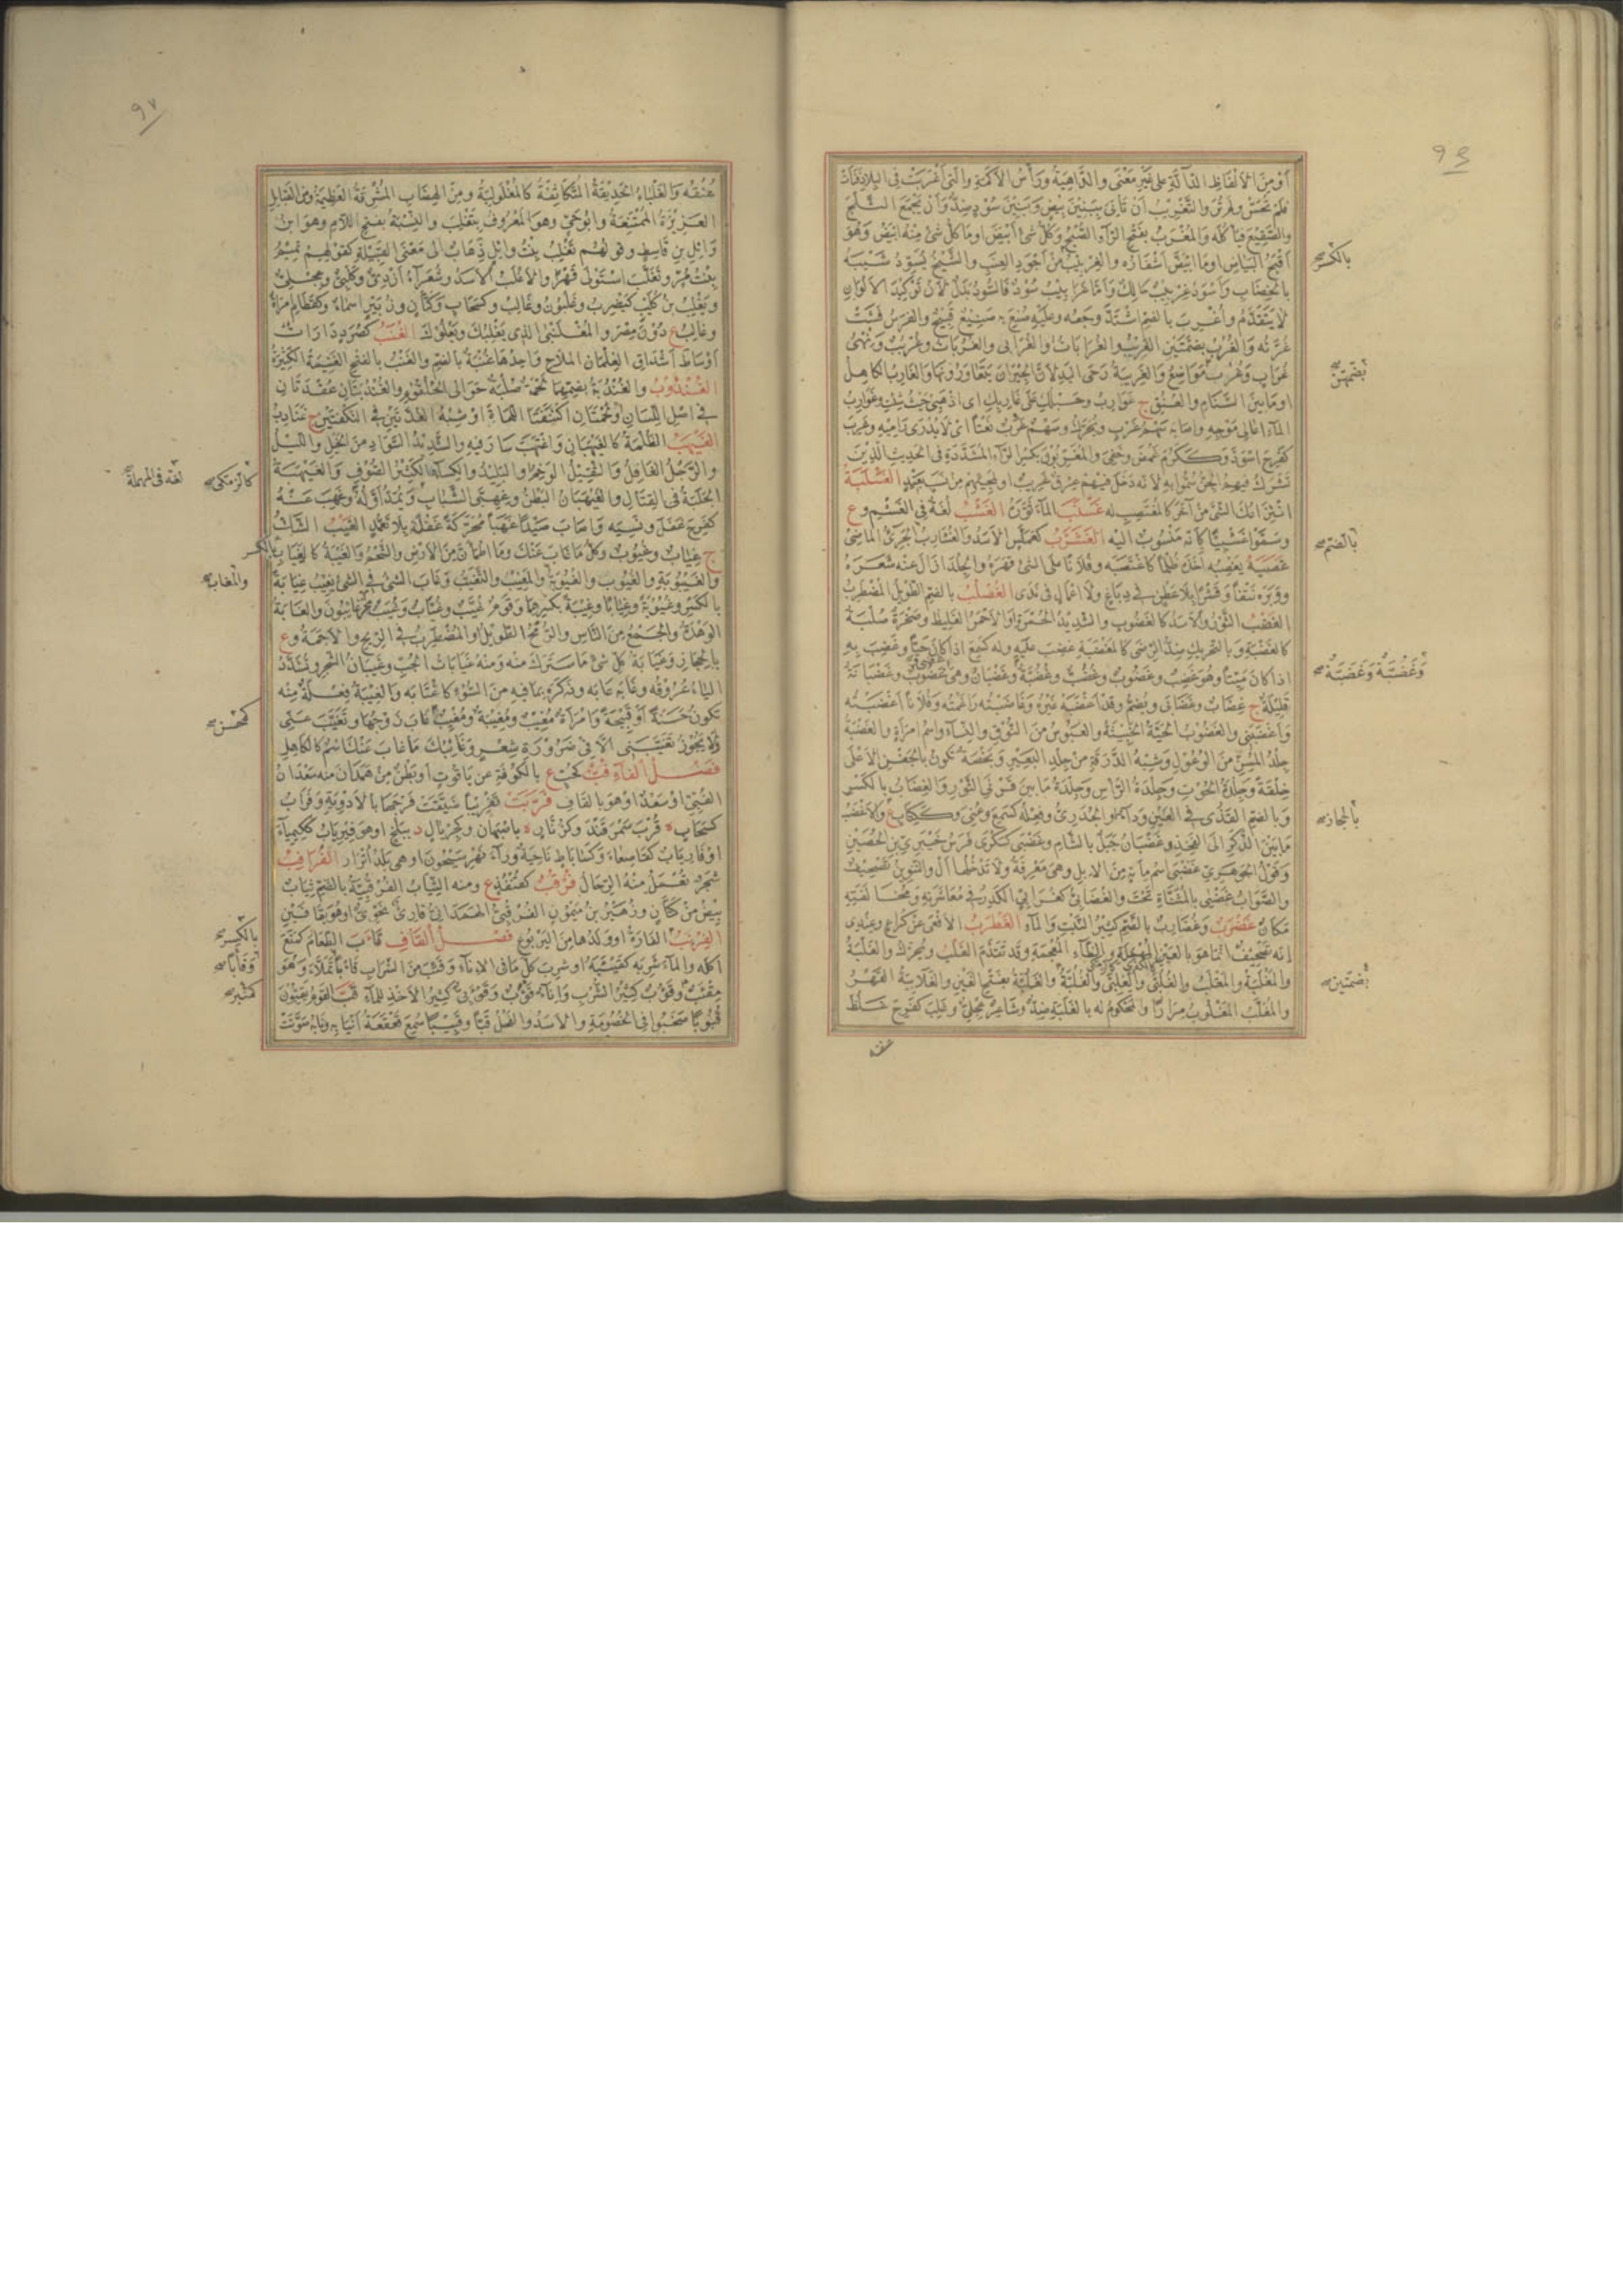 او من الالفاظ الدالة على غير معنى والداهية ورأس الاكمة والتى اغربت فى البلاد فنأت
فلم تحس ولم تر والتغريب ان تاتى ببنين بيض وببنين سود ضد وان تجمع الثلج
والصقيع فتأكله والمغرب بفتح الراء الصبح وكل شئ ابيض او ما كل شئ منه ابيض وهو
اقبح البياض او ما ابيض اشفاره والغربيب من اجود العنب والشيخ يسود شيبه
بالخضاب واسود غربيب حالك واما غرابيب سود فالسود بدل لان توكيد الالوان
لا يتقدم واغرب بالضم اشتد وجعه وعليه صنع به صنيع قبيح والفرس فشت
غرته والغرب بضمتين الغريب والغرابات والغرابى والغربات وغريب ونهى
غراب وغرب مواضع والغريبة رحى اليد لان الجيران يتعاورونها والغارب الكاهل
او ما بين السنام والعنق ج غوارب وحبلك على غاربك اى اذهبى حيث شئت وغوارب
الماء اعالى موجه واصابه سهم غرب ويحرك وسهم غرب نعتا اى لا يدرى راميه وغرب
كفرح اسود وككرم غمض وخفى والمغربون بكسر الراء المشددة فى الحديث الذين
تشرك فيهم الجن سموا به لانه دخل فيهم عرق غريب او لمجيئهم من نسب بعيد الغسلبة
انتزاعك الشئ من آخر كالمغتصب له غسنب الماء ثوره الغشب لغة فى الغشم وع
وسموا غشبيا كانه منسوب اليه الغشرب كعملس الاسد والغشارب الجرئ الماضى
غصبه يغصبه اخذه ظلما كاغتصبه وفلانا على الشئ قهره والجلد ازال عنه شعره
ووبره نتفا وقشرا بلا عطن فى دباغ ولا اعمال فى ندى الغصلب بالضم الطويل المضطرب
الغضب الثور والاسد كالغضوب والشديد الحمرة او الاحمر الغليظ وصخرة صلبة
كالغضبة وبالتحريك ضد الرضى كالمغضبة غضب عليه وله كسمع اذا كان حيا وغضب به
اذا كان ميتا وهو غضب وغضوب وغضب وغضبة وغضبان وهى غضبى وغضوب وغضبانة
قليلة ج غضاب وغضابى ويضم وقد اغضبه غيره وغاضبته راغمته وفلانا اغضبته
واغضبنى والغضوب الحية الخبيثة والعبوس من النوق والنساء واسم امرأة والغضبة
جلد المسن من الوعول وشبه الدرقة من جلد البعير وبخصة تكون بالجفن الاعلى
خلقة وجلدة الحوت وجلدة الراس وجلدة ما بين قرنى الثور والغضاب بالكسر
وبالضم القذى فى العين وداء او الجدرى وفعله كسمع وعنى وككتاب ع والاغضب
ما بين الذكر الى الفخذ وغضبان جبل بالشام وغضبى كسكرى فرس خيبرى بن الحصين
وقول الجوهرى غضبى اسم مائة من الابل وهى معرفة ولا تدخلها ال والتنوين تصحيف
والصواب غضيى بالمثناة تحت والغضابى كغرابى الكدر فى معاشرته ومخالفته
مكان غضرب وغضارب بالضم كثير النبت والماء الغطرب الافعى عن كراع وعندى
انه تصحيف انما هو بالعين المهملة والظاء المعجمة وقد تقدم الغلب ويحرك والغلبة
والمغلبة والمغلب والغلبى والغلبى والغلبة والغلبة بفتح الغين والغلابية القهر
والمغلب المغلوب مرارا والمحكوم له بالغلبة ضد وشاعر عجلى وغلب كفرح غلظ
عنقه
بالكسر
بضمتين
بالضم
وغضبة وغضبة
بالحجاز
بضمتين
عنقه والغلباء الحديقة المتكاثفة كالمغلولبة ومن الهضاب المشرفة العظيمة ومن القبايل
العزيزة الممتنعة وابو حى وهو المعروف بتغلب والنسبة بفتح اللام وهو ابن
وائل بن قاسط وقولهم تغلب بنت وايل ذهاب الى معنى القبيلة كقولهم تميم
بنت مر وتغلب استولى قهرا والاغلب الاسد وشعراء ازدى وكلبى وعجلى
ويغلب بن كليب كيضرب وغلبون وغالب وكسحاب وكتان وزبير اسماء وكقطام امرأة
وغالب ع دون مصر والمغلنبى الذى يغلبك ويعلوك الغنب كصرد دارات
اوساط اشداق الغلمان الملاح واحدها غنبة بالضم والغنب بالفتح الغنيمة الكثيرة
الغندوب والغندبة بضمهما لحمة صلبة حوالى الحلقوم والغندبتان عقدتان
فى اصل اللسان او لحمتان اكتنفتا اللهاة او شبه الغدتين فى النكفتين ج غنادب
الغيهب الظلمة كالغيهبان واغتهب سار فيه والشديد السواد من الخيل والليل
والرجل الغافل والثقيل الوخم او البليد والكساء الكثير الصوف والغيهبة
الجلبة فى القتال والغيهبان البطن وغهبى الشباب ويمد اوله وغهب عنه
كفرح غفل ونسيه واصاب صيدا غهبا محركة غفلة بلا تعمد الغيب الشك
ج غياب وغيوب وكل ما غاب عنك وما اطمأن من الارض والشحم والغيبة كالغياب بالكسر
والغيبوبة والغيوب والغيوبة والمغيب والتغيب وغاب الشئ فى الشئ يغيب غيابة
بالكسر وغيوبة وغيابا وغيبة بكسرهما وقوم غيب وغياب وغيب محركة غائبون والغابة
الوهدة والجمع من الناس والرمح الطويل او المضطرب فى الريح والاجمة وع
بالحجاز وغيابة كل شئ ما سترك منه ومنه غيابات الجب وغيبان الشجر وتشدد
الياء عروقه وغابه عابه وذكره بما فيه من السوء كاغتابه والغيبة فعلة منه
تكون حسنة او قبيحة وامرأة مغيب ومغيبة ومغيب غاب زوجها وتغيب عنى
ولا يجوز تغيبنى الا فى ضرورة شعر وغائبك ما غاب عنك اسم كالكاهل
فصل الفاء فب كحب ع بالكوفة عن ياقوت او بطن من همدان منه سعدان
الفبى او سعد او هو بالقاف فربت تفريبا ضيقت فرجها بالادوية وفراب
كسحاب ة قرب سمرقند وكزنابى ة باصبهان وكجريال د ببلخ او هو فيرياب ككيمياء
او فارياب كقاصعاء وكساباط ناحية وراء نهر سيحون او هى بلد اترار الفرافب
شجر تعمل منه الرحال فرقب كقنفذ ع ومنه الثياب الفرقبية بالضم ثياب
بيض من كتان وزهير بن ميمون الفرقبى الهمدانى قارئ نحوى او هو بقافين
الفرنب الفارة او ولدها من اليربوع فصل القاف قأب الطعام كمنع
اكله والماء شربه كقئبه او شرب كل ما فى الاناء وقئب من الشراب قأبا تملأ وهو
مقأب وقؤوب كثير الشرب واناء قوأب وقوأبى كثير الاخذ للماء قب القوم يقبون
قبوبا صخبوا فى الخصومة والاسد والفحل قبا وقبيبا سمع قعقعة انيابه ونابه صوتت
لغة فى المهملة
كالزمكى
والمغاب
كمحسن
بالكسر
وقأبا
كمنبر